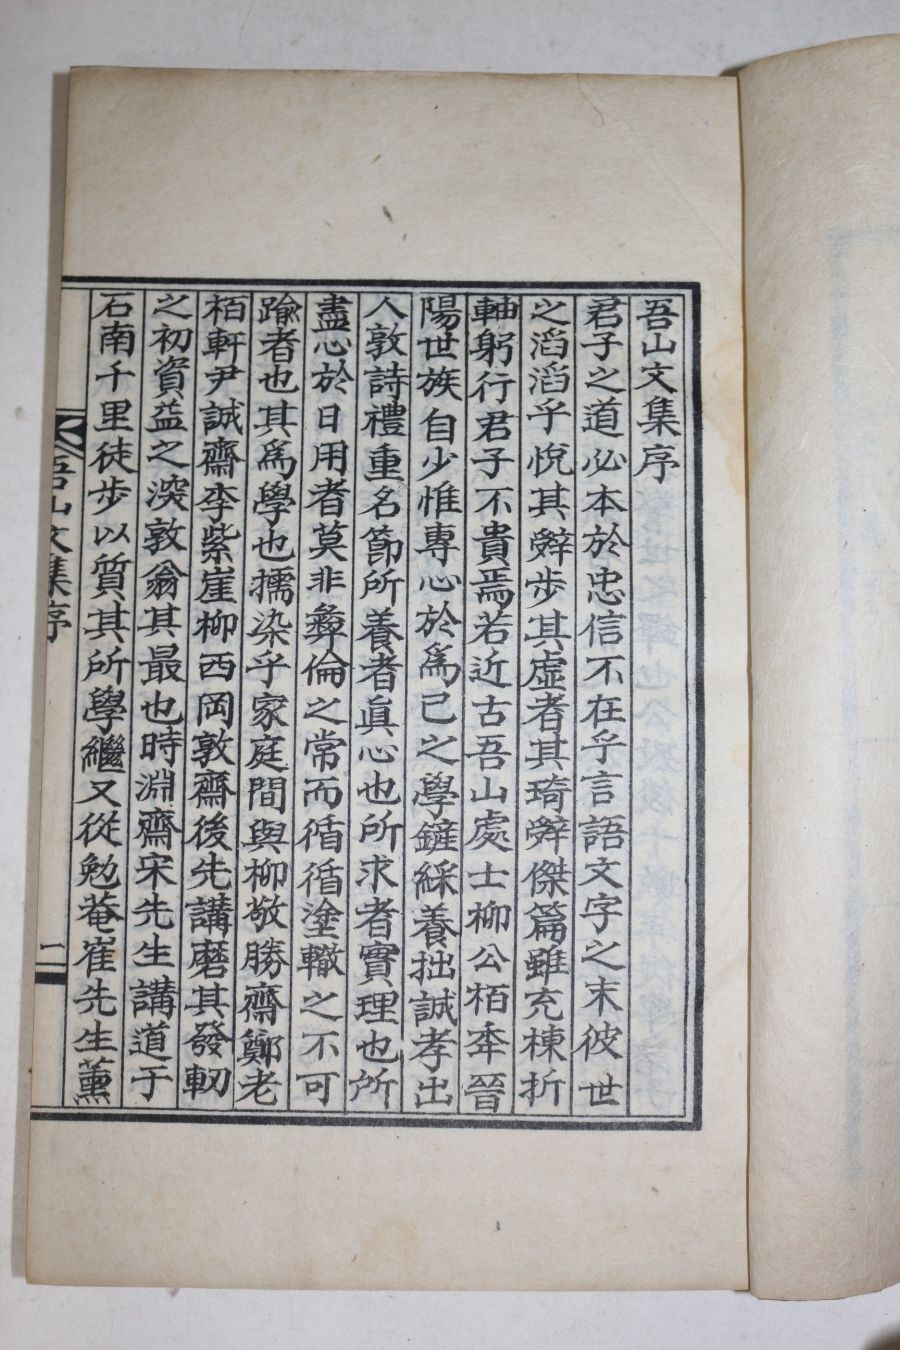 吾山文集序
君子之道必本於忠信不在乎言語文字之末彼世
之滔滔乎悅其辭步其虛者其琦辭傑篇雖充棟折
軸躬行君子不貴焉若近古吾山處士柳公栢奉晉
陽世族自少惟專心於爲己之學鏟綵養拙誠孝出
人敦詩禮重名節所養者眞心也所求者實理也所
盡心於日用者莫非彝倫之常而循循塗轍之不可
踰者也其爲學也擩染乎家庭間與柳敬勝齋鄭老
栢軒尹誠齋李紫崖柳西岡敦齋後先講磨其發軔
之初資益之深敦翁其最也時淵齋宋先生講道于
石南千里徒步以質其所學繼又從勉菴崔先生薰
吾山文集序